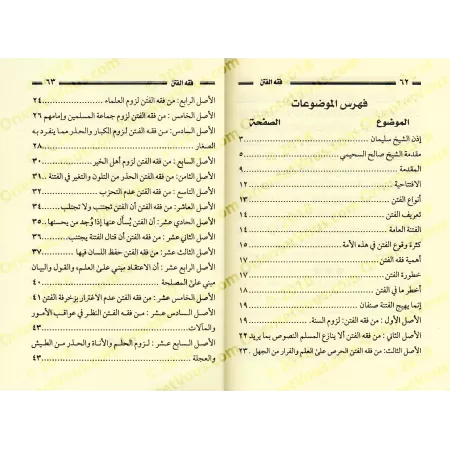 ٦٢ فقه الفتن
فهرس الموضوعات
الموضوع الصفحة
إذن الشيخ سليمان ٣
مقدمة الشيخ صالح السحيمي ٥
المقدمة ٩
الافتتاحية ١٢
أنواع الفتن ١٣
تعريف الفتن ١٤
الفتنة العامة ١٤
كثرة وقوع الفتن في هذه الأمة ١٥
أهمية فقه الفتن ١٧
خطورة الفتن ١٧
أخطر ما في الفتن ١٨
إنما يهيج الفتنة صنفان ١٩
الأصل الأول: من فقه الفتن: لزوم السنة ١٩
الأصل الثاني: من فقه الفتن ألا ينازع المسلم النصوص بما يريد ٢٢
الأصل الثالث: من فقه الفتن الحرص على العلم والفرار من الجهل ٢٣
فقه الفتن ٦٣
الأصل الرابع: من فقه الفتن لزوم العلماء ٢٤
الأصل الخامس: من فقه الفتن لزوم جماعة المسلمين وإمامهم ٢٦
الأصل السادس: من فقه الفتن لزوم الكبار والحذر مما ينفرد به
الصغار ٢٨
الأصل السابع: من فقه الفتن لزوم أهل الخير ٣٠
الأصل الثامن: من فقه الفتن الحذر من التلون والتغير في الفتنة ٣١
الأصل التاسع: من فقه الفتن عدم التحزب ٣٢
الأصل العاشر: من فقه الفتن أن الفتن تجتنب ولا تجتلب ٣٤
الأصل الحادي عشر: أن الفتن يُسأل عنها إذا وُجد من يحسنها ٣٥
الأصل الثاني عشر: من فقه الفتن أن قتال الفتنة يجتنب ٣٦
الأصل الثالث عشر: من فقه الفتن حفظ اللسان فيها ٣٧
الأصل الرابع عشر: أن الاعتقاد مبني على العلم، والقول والبيان
مبني على المصلحة ٤٠
الأصل الخامس عشر: من فقه الفتن عدم الاغترار بزخرفة الفتن ٤١
الأصل السادس عشر: من فقه الفتن النظر في عواقب الأمور
والمآلات ٤٣
الأصل السابع عشر: لزوم الحلم والأناة والحذر من الطيش
والعجلة ٤٣